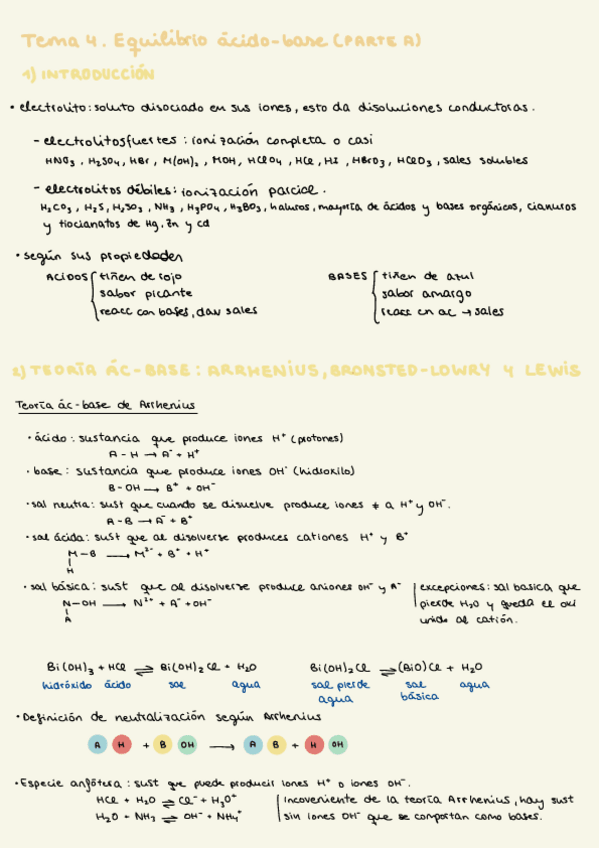 Tema 4. Equilibrio ácido-base (PARTE A)
1) INTRODUCCIÓN
• electrolito: soluto disociado en sus iones, esto da disoluciones conductoras.
- electrolitos fuertes: ionización completa o casi
HNO₃, H₂SO₄, HBr, M(OH)₂, MOH, HClO₄, HCl, HI, HBrO₃, HClO₃, sales solubles
- electrolitos débiles: ionización parcial.
H₂CO₃, H₂S, H₂SO₃, NH₃, H₃PO₄, H₃BO₃, haluros, mayoría de ácidos y bases orgánicos, cianuros
y tiocianatos de Hg, Zn y Cd
• según sus propiedades
ACIDOS tiñen de rojo
sabor picante
reacc con bases, dan sales
BASES tiñen de azul
sabor amargo
reacc cn ac → sales
2) TEORÍA ÁC-BASE: ARRHENIUS, BRONSTED-LOWRY Y LEWIS
Teoría ác-base de Arrhenius
• ácido: sustancia que produce iones H⁺ (protones)
A-H → A⁻ + H⁺
• base: sustancia que produce iones OH⁻ (hidroxilo)
B-OH → B⁺ + OH⁻
• sal neutra: sust que cuando se disuelve produce iones ≠ a H⁺ y OH⁻.
A-B → A⁻ + B⁺
• sal ácida: sust que al disolverse produces cationes H⁺ y B⁺
M-B → M²⁻ + B⁺ + H⁺
|
H
• sal básica: sust que al disolverse produce aniones OH⁻ y A⁻
N-OH → N²⁺ + A⁻ + OH⁻
|
A
excepciones: sal basica que
pierde H₂O y queda el oxi
unido al catión.
Bi(OH)₃ + HCl ⇌ Bi(OH)₂Cl + H₂O
hidróxido ácido sal agua
Bi(OH)₂Cl ⇌ (BiO)Cl + H₂O
sal pierde agua sal básica agua
• Definición de neutralización según Arrhenius
A H + B OH → A B + H OH
• Especie anfótera: sust que puede producir iones H⁺ o iones OH⁻.
HCl + H₂O ⇌ Cl⁻ + H₃O⁺
H₂O + NH₃ ⇌ OH⁻ + NH₄⁺
Incoveniente de la teoría Arrhenius, hay sust
sin iones OH⁻ que se comportan como bases.